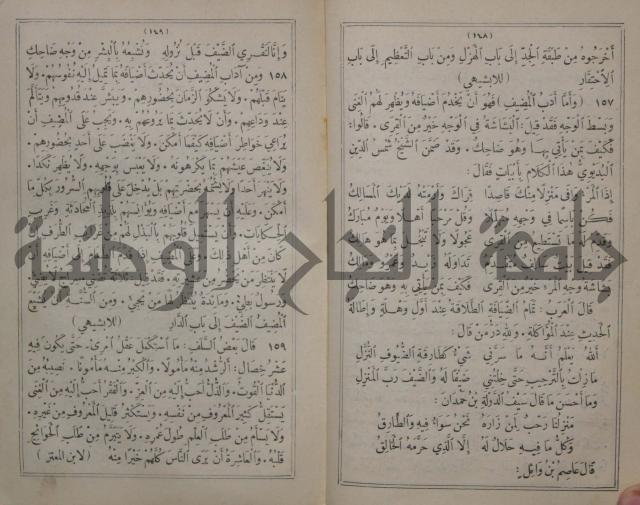 (١٤٨)
أَخْرَجُوهُ مِنْ طَبَقَةِ الْجِدِّ إِلَى بَابِ الْهَزْلِ وَمِنْ بَابِ التَّعْظِيمِ إِلَى بَابِ
الِاحْتِقَارِ (للابشيهي)
١٥٧ (وَأَمَّا أَدَبُ الْمُضِيفِ) فَهُوَ أَنْ يَخْدُمَ أَضْيَافَهُ وَيُظْهِرَ لَهُمُ الْغِنَى
وَبَسْطَ الْوَجْهِ فَقَدْ قِيلَ: الْبَشَاشَةُ فِي الْوَجْهِ خَيْرٌ مِنَ الْقِرَى. قَالُوا:
فَكَيْفَ بِمَنْ يَأْتِي بِهَا وَهُوَ ضَاحِكٌ. وَقَدْ ضَمَّنَ الشَّيْخُ شَمْسُ الدِّينِ
الْبَدِيوِيُّ هٰذَا الْكَلَامَ بِأَبْيَاتٍ فَقَالَ:
إِذَا الْمَرْءُ وَافَى مَنْزِلًا مِنْكَ قَاصِدًا قِرَاكَ وَأَرْمَتْهُ لَدَيْكَ الْمَسَالِكُ
فَكُنْ بَاسِمًا فِي وَجْهِهِ مُتَهَلِّلًا وَقُلْ مَرْحَبًا أَهْلًا وَيَوْمٌ مُبَارَكُ
وَقَدِّمْ لَهُ مَا تَسْتَطِيعُ مِنَ الْقِرَى عَجُولًا وَلَا تَبْخَلْ بِمَا هُوَ هَالِكُ
فَقَدْ قِيلَ بَيْتٌ سَالِفٌ مُتَقَدِّمٌ تَدَاوَلَهُ زَيْدٌ وَعَمْرٌو وَمَالِكُ
بَشَاشَةُ وَجْهِ الْمَرْءِ خَيْرٌ مِنَ الْقِرَى فَكَيْفَ بِمَنْ يَأْتِي بِهِ وَهُوَ ضَاحِكُ
قَالَ الْعَرَبُ: تَمَامُ الضِّيَافَةِ الطَّلَاقَةُ عِنْدَ أَوَّلِ وَهْلَةٍ وَإِطَالَةُ
الْحَدِيثِ عِنْدَ الْمُؤَاكَلَةِ. وَلِلّٰهِ دَرُّ مَنْ قَالَ:
اللّٰهُ يَعْلَمُ أَنَّهُ مَا سَرَّنِي شَيْءٌ كَطَارِقَةِ الضُّيُوفِ النُّزَّلِ
مَا زِلْتُ بِالتَّرْحِيبِ حَتَّى خِلْتُنِي ضَيْفًا لَهُ وَالضَّيْفَ رَبَّ الْمَنْزِلِ
وَمَا أَحْسَنَ مَا قَالَ سَيْفُ الدَّوْلَةِ بْنُ حَمْدَانَ:
مَنْزِلُنَا رَحْبٌ لِمَنْ زَارَهُ نَحْنُ سَوَاءٌ فِيهِ وَالطَّارِقُ
وَكُلُّ مَا فِيهِ حَلَالٌ لَهُ إِلَّا الَّذِي حَرَّمَهُ الْخَالِقُ
قَالَ عَاصِمُ بْنُ وَائِلٍ:
(١٤٩)
وَإِنَّا لَنَقْرِي الضَّيْفَ قَبْلَ نُزُولِهِ وَنُشْبِعُهُ بِالْبِشْرِ مِنْ وَجْهِ ضَاحِكِ
١٥٨ وَمِنْ آدَابِ الْمُضِيفِ أَنْ يُحَدِّثَ أَضْيَافَهُ بِمَا تَمِيلُ إِلَيْهِ نُفُوسُهُمْ. وَلَا
يَنَامَ قَبْلَهُمْ. وَلَا يَشْكُوَ الزَّمَانَ بِحُضُورِهِمْ. وَيَبَشَّ عِنْدَ قُدُومِهِمْ وَيَتَأَلَّمَ
عِنْدَ وَدَاعِهِمْ. وَأَنْ لَا يُحَدِّثَ بِمَا يُرَوِّعُهُمْ بِهِ. وَيَجِبُ عَلَى الْمُضِيفِ أَنْ
يُرَاعِيَ خَوَاطِرَ أَضْيَافِهِ كَيْفَمَا أَمْكَنَ. وَلَا يَغْضَبَ عَلَى أَحَدٍ بِحُضُورِهِمْ.
وَلَا يُنَغِّصَ عَيْشَهُمْ بِمَا يَكْرَهُونَهُ. وَلَا يَعْبِسَ بِوَجْهِهِ. وَلَا يُظْهِرَ نَكَدًا.
وَلَا يَنْهَرَ أَحَدًا وَلَا يَشْتُمَهُ بِحَضْرَتِهِمْ بَلْ يُدْخِلُ عَلَى قُلُوبِهِمِ السُّرُورَ بِكُلِّ مَا
أَمْكَنَ. وَعَلَيْهِ أَنْ يَسْهَرَ مَعَ أَضْيَافِهِ وَيُؤَانِسَهُمْ بِلَذِيذِ الْمُحَادَثَةِ وَغَرِيبِ
الْحِكَايَاتِ. وَأَنْ يَسْتَمِيلَ قُلُوبَهُمْ بِالْبَذْلِ لَهُمْ مِنْ غَرَائِبِ الطُّرَفِ إِنْ
كَانَ مِنْ أَهْلِ ذٰلِكَ. وَعَلَى الْمُضِيفِ إِذَا قَدَّمَ الطَّعَامَ إِلَى أَضْيَافِهِ أَنْ
لَا يَنْتَظِرَ مَنْ يَحْضُرُ مِنْ عَشِيرَتِهِ. فَقَدْ قِيلَ ثَلَاثَةٌ تُضْنِي سِرَاجٌ لَا يُضِيءُ
وَرَسُولٌ بَطِيءٌ. وَمَائِدَةٌ يُنْتَظَرُ لَهَا مَنْ يَجِيءُ. وَمِنَ السُّنَّةِ أَنْ يُشَيِّعَ
الْمُضِيفُ الضَّيْفَ إِلَى بَابِ الدَّارِ (للابشيهي)
١٥٩ قَالَ بَعْضُ السَّلَفِ: مَا اسْتَكْمَلَ عَقْلُ امْرِئٍ. حَتَّى يَكُونَ فِيهِ
عَشْرُ خِصَالٍ: الرُّشْدُ مِنْهُ مَأْمُولًا. وَالْكِبْرُ مِنْهُ مَأْمُونًا. نَصِيبُهُ مِنَ
الدُّنْيَا الْقُوتُ. وَالذُّلُّ أَحَبُّ إِلَيْهِ مِنَ الْعِزِّ. وَالْفَقْرُ أَحَبُّ إِلَيْهِ مِنَ الْغِنَى
يَسْتَقِلُّ كَثِيرَ الْمَعْرُوفِ مِنْ نَفْسِهِ. وَيَسْتَكْثِرُ قَلِيلَ الْمَعْرُوفِ مِنْ غَيْرِهِ.
وَلَا يَسْأَمُ مِنْ طَلَبِ الْعِلْمِ طُولَ عُمْرِهِ. وَلَا يَتَبَرَّمُ مِنْ طَلَبِ الْحَوَائِجِ
قَلْبُهُ. وَالْعَاشِرَةُ أَنْ يَرَى النَّاسَ كُلَّهُمْ خَيْرًا مِنْهُ (لابن المعتز)
جامعة النجاح الوطنية